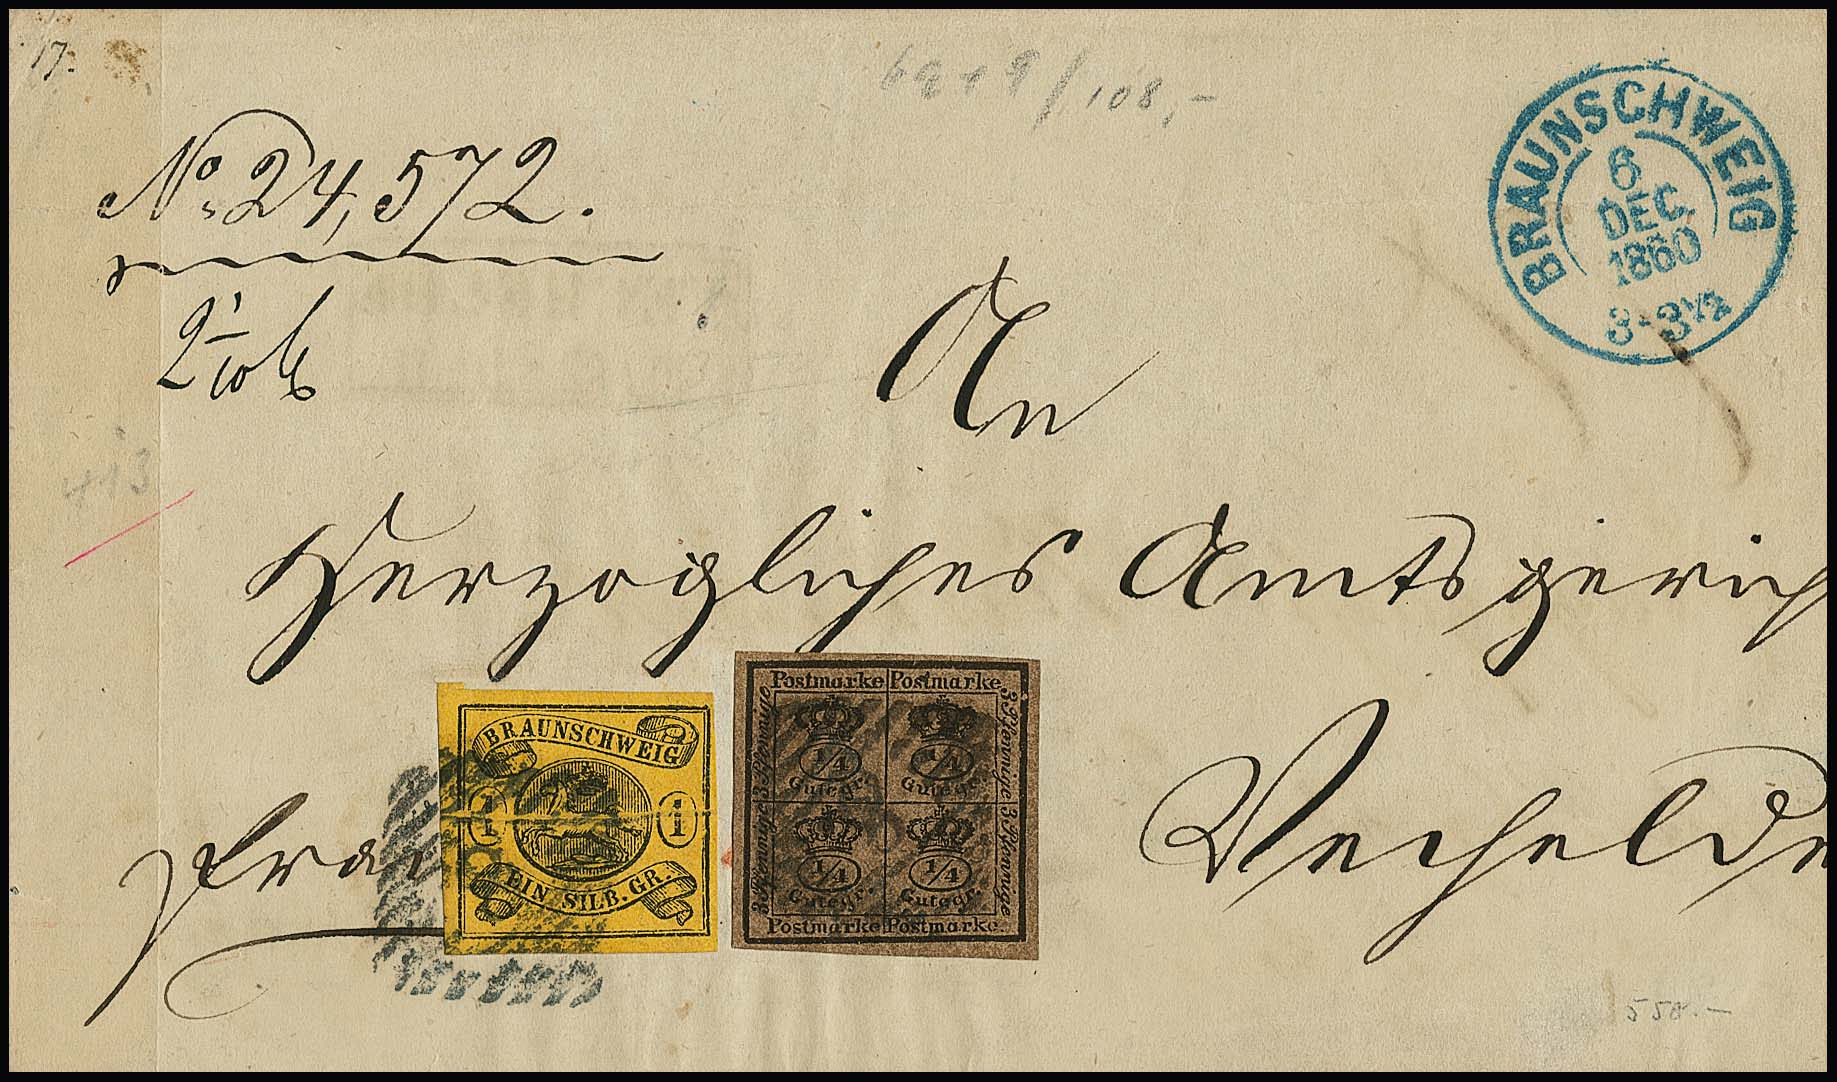 17.
6a + 9 / 108,-
No. 24,572.
BRAUNSCHWEIG
6
DEC.
1860
3-3½
2 1/10 lb
An
413
Herzogliches Amtsgerich
Vechelde
BRAUNSCHWEIG
1 1
EIN SILB. GR.
Postmarke Postmarke
3 Pfennige 3 Pfennige
3 Pfennige 3 Pfennige
1/4 Gutegr. 1/4 Gutegr.
1/4 Gutegr. 1/4 Gutegr.
Postmarke Postmarke
558.-